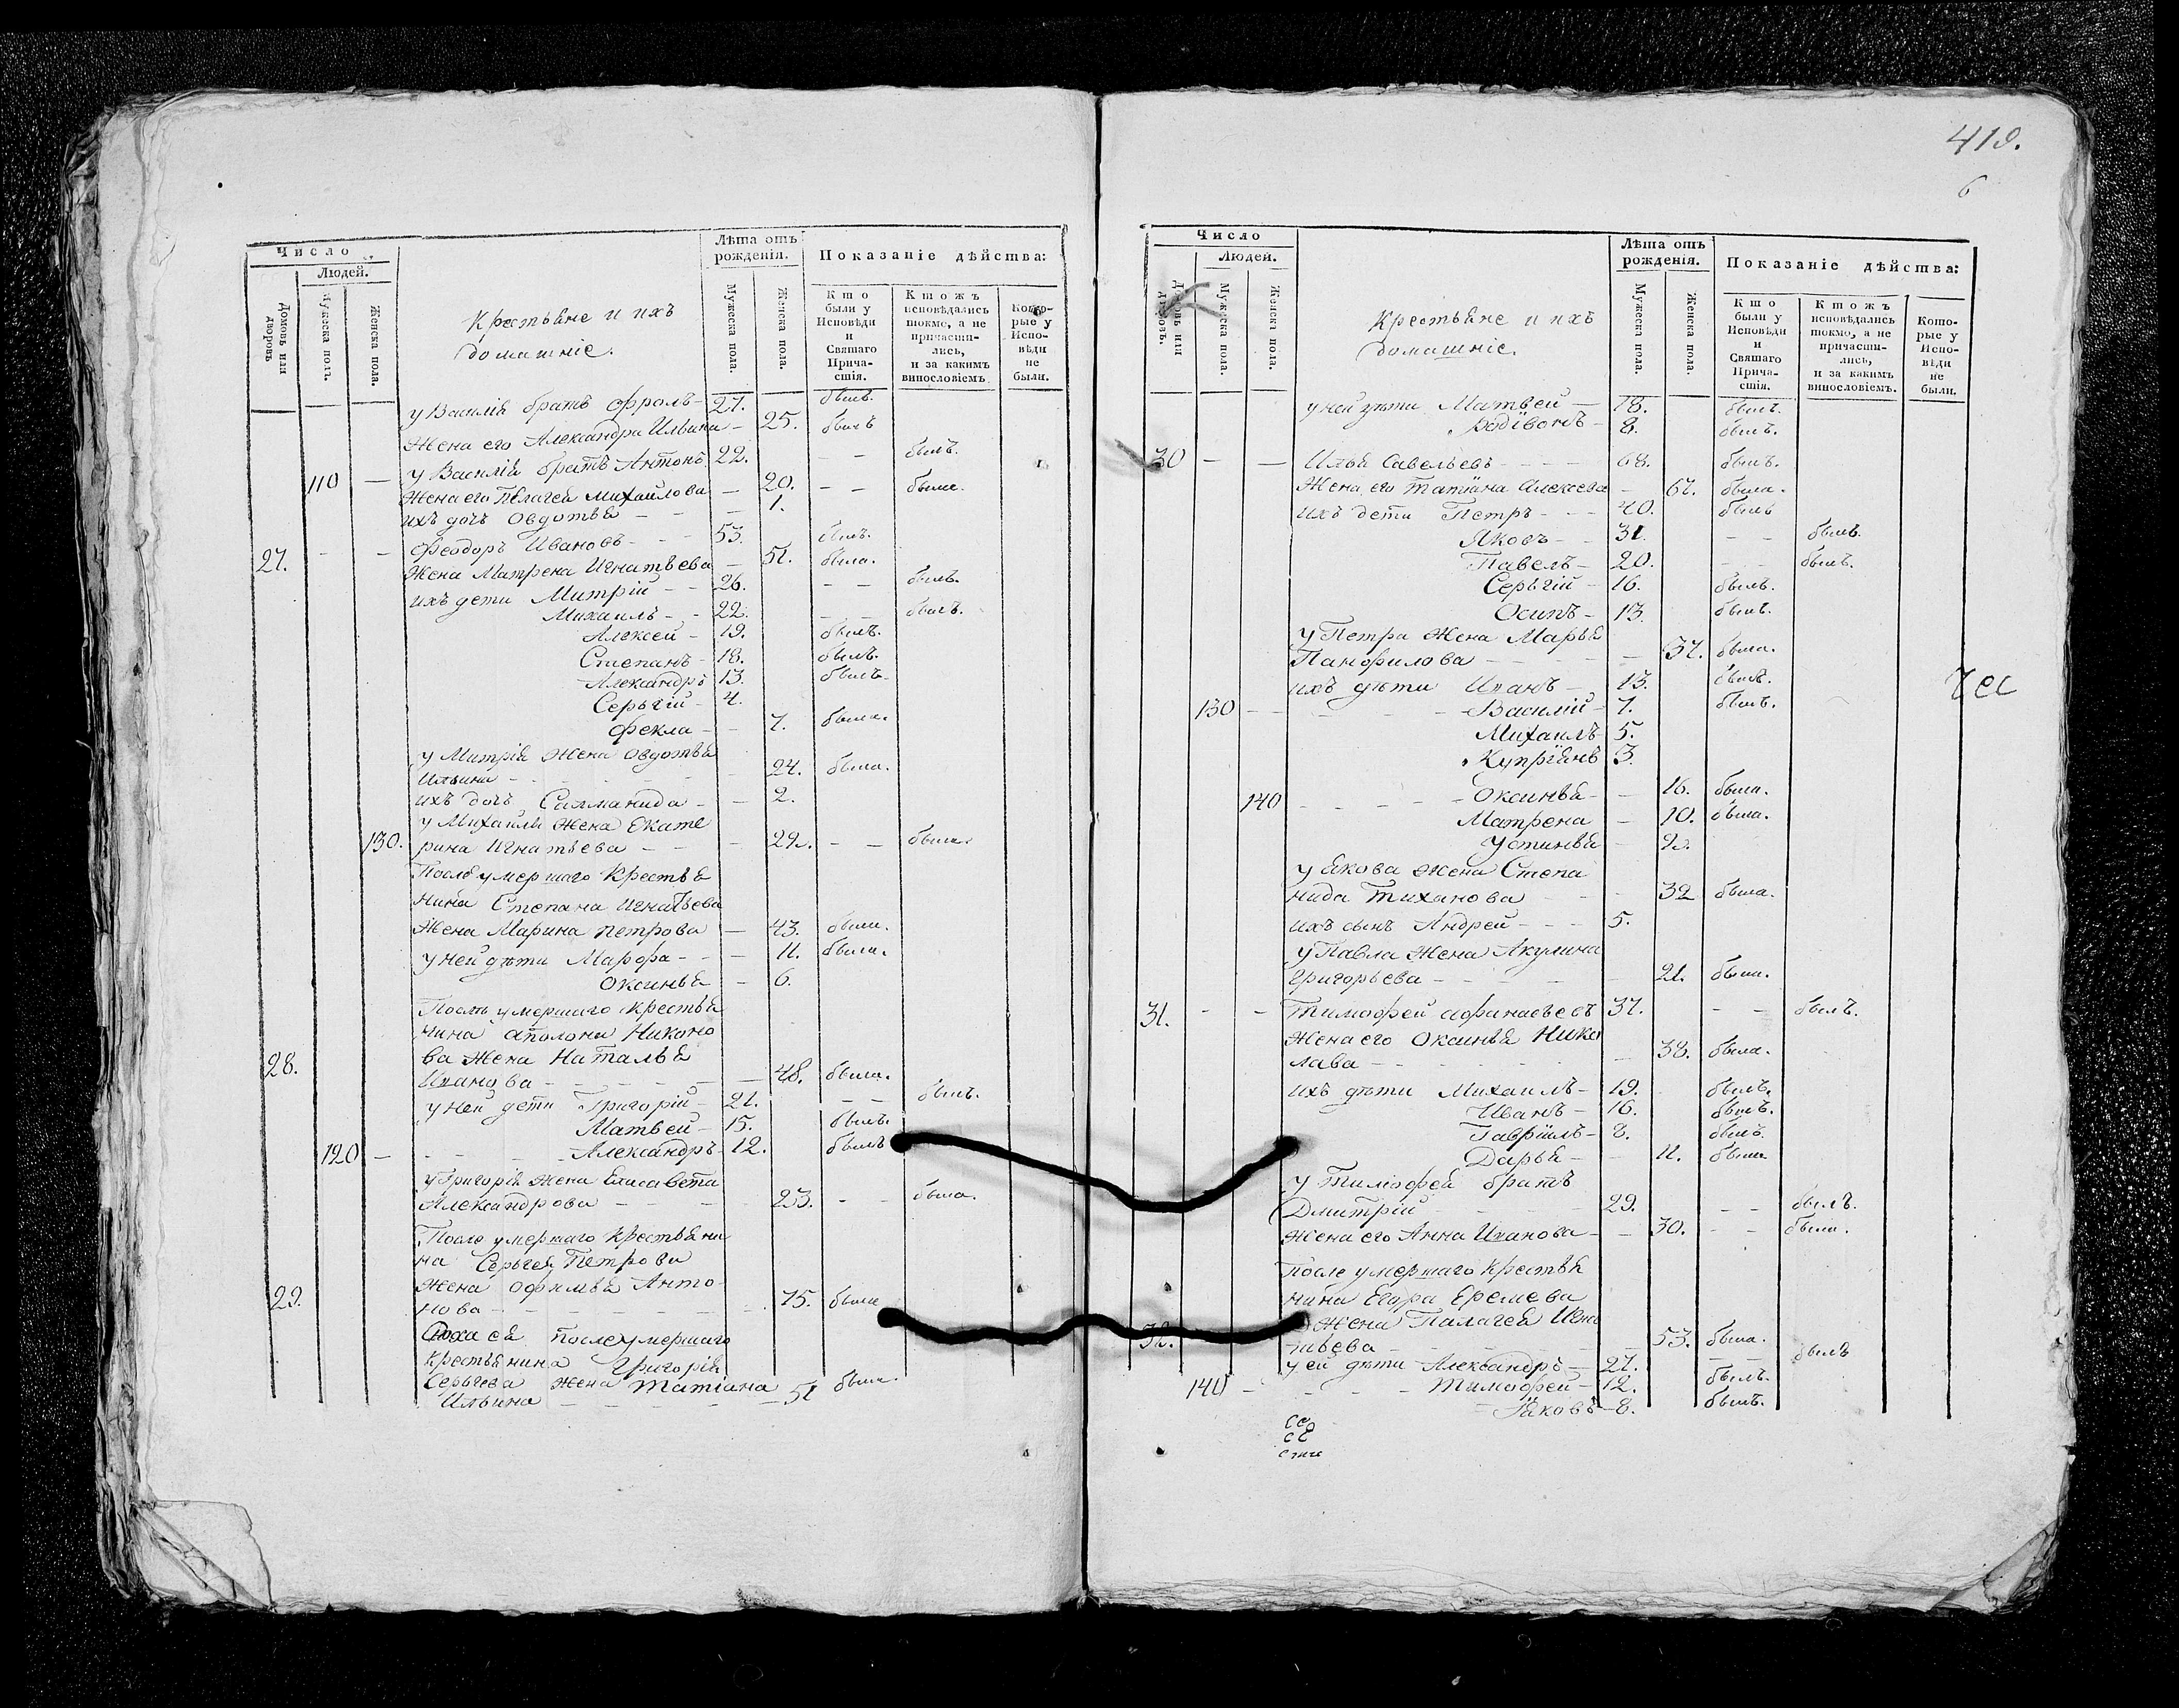 Число
Людей.
Домовъ или дворовъ
Мужеска полъ.
Женска пола.
Крестьяне и ихъ
домашніе.
Лѣта отъ рожденія.
Мужеска пола.
Женска пола.
Показаніе дѣйства:
Кто были у Исповѣди и Святаго Прича-стія.
Ктожъ исповѣдались токмо, а не причасти-лись, и за какимъ винословіемъ.
Кото-рые у Испо-вѣди не были.
у Василія братъ Фролъ - 27. былъ.
Жена его Александра Ильина - 25. былъ
у Василія братъ Антонъ 22. - - былъ.
110 - Жена его Пелагея Михайлова - 20. - - была.
ихъ дочь Овдотья - - - 1.
27. - - Феодоръ Ивановъ - - - 53. былъ.
Жена Матрена Игнатьева - 51. была.
ихъ дети Митрій - - 26. - - былъ.
Михаилъ - - 22. - - былъ.
Алексей - 19. былъ.
Степанъ - 18. былъ.
Александръ 13. былъ.
Серьгій - 4.
Фекла - - 7. была.
у Митрія Жена Овдотья
Ильина - - - - - - 24. была.
ихъ дочь Саламанида - - 2.
у Михайлы Жена Екате
130. рина Игнатьева - - - 22. - - была.
После умершаго Крестья
нина Степана Игнатьева
Жена Марина Петрова - 43. была.
у ней дѣти Марфа - - - 11. была.
Оксинья - 6.
После умершаго Крестья
нина Аполона Никоно
28. ва Жена Наталья
Иванова - - - - - - 48. была.
у ней дети Григорій - 21. - - былъ.
Матвей - 15. былъ.
120 - - - - Александръ - 12. былъ
у Григорія Жена Елисавета
Александрова - - - - 23. - - была.
После умершаго Крестьяни
на Серьгея Петрова
29. Жена Офимья Анто
нова - - - - - - - 75. была
Сноха ея после умершаго
Крестьянина Григорія
Серьгева Жена Татіана
Ильина - - - - - 51 была.
419.
6
Число
Людей.
Домовъ или дворовъ.
Мужеска пола.
Женска пола.
Крестьяне и ихъ
домашніе.
Лѣта отъ рожденія.
Мужеска пола.
Женска пола.
Показаніе дѣйства:
Кто были у Исповѣди и Святаго Прича-стія.
Ктожъ исповѣдались токмо, а не причасти-лись, и за какимъ винословіемъ.
Кото-рые у Испо-вѣди не были.
у ней дѣти Матвей - 18. былъ.
Родівонъ - 8. былъ.
30 - - Илья Савельевъ - - - - 68. былъ.
Жена его Татіана Алексева - 67. была.
ихъ дети Петръ - - - 40. былъ
Яковъ - - 31. - - былъ.
Павелъ - 20. - - былъ.
Серьгій - 16. былъ.
Осипъ - 13. былъ.
у Петра Жена Марья
Панфилова - - - - - 37. была.
ихъ дѣти Иванъ - 13. былъ.
130 - - - - - Василій - 7. былъ.
Михаилъ 5.
Купріянъ 3.
140 - - - - - Оксинья - - 16. была.
Матрена - 10. была.
Устинья - 2.
у Якова Жена Степа
нида Тиханова - - - 32 была.
ихъ сынъ Андрей - - - 5.
у Павла Жена Акулина
Григорьева - - - - - 21. была.
31. - - Тимофей Афанасьевъ 37. - - былъ.
Жена его Оксинья Нико
лава - - - - - 38. была.
ихъ дѣти Михаилъ - 19. былъ.
Иванъ - 16. былъ.
Гавріилъ - 8. былъ.
Дарья - - 11. была
у Тимофея братъ
Дмитрій - - - - 29. - - былъ.
Жена его Анна Иванова - - 30. - - была.
После умершаго Крестья
нина Егора Еремева
32. Жена Палагея Игна
тьева - - - - - - 53. была.
у ей дѣти Александръ - 27. - - былъ
140 - - - - Тимофей - 12. былъ.
Яковъ - 8. былъ.